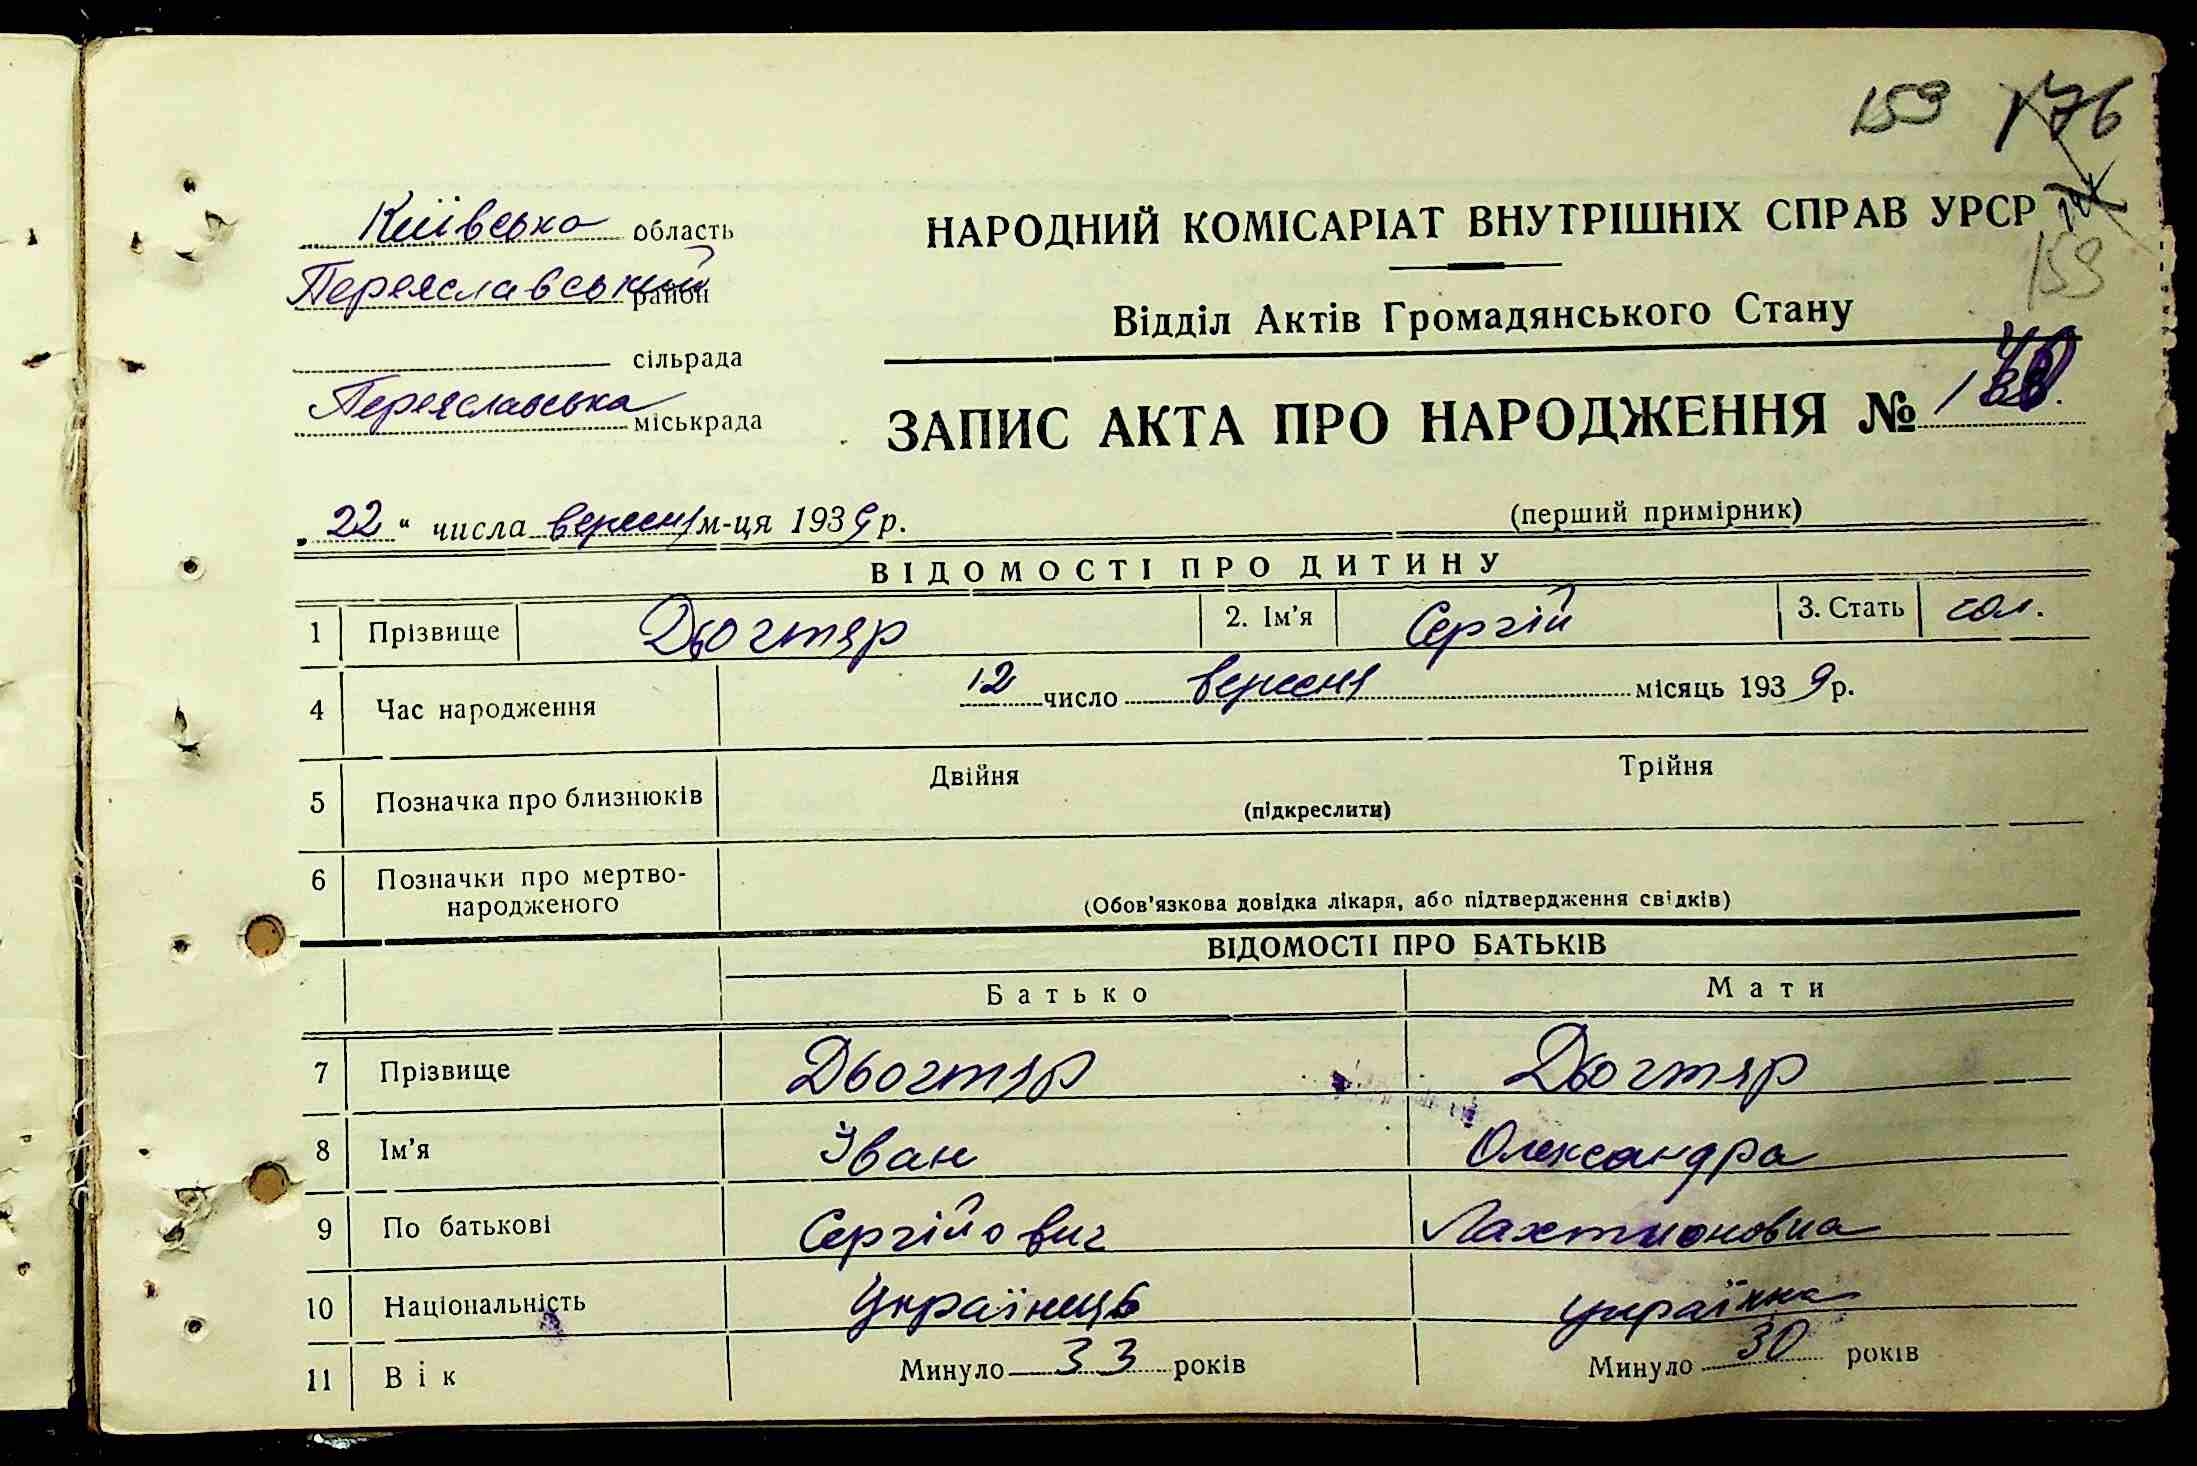 159 176
Київська область
НАРОДНИЙ КОМІСАРІАТ ВНУТРІШНІХ СПРАВ УРСР
159
Переяславський район
Відділ Актів Громадянського Стану
сільрада
Переяславська міськрада
ЗАПИС АКТА ПРО НАРОДЖЕННЯ №
„22“ числа вересня м-ця 1939 р.
(перший примірник)
ВІДОМОСТІ ПРО ДИТИНУ
1 Прізвище Дьогтяр 2. Ім’я Сергій 3. Стать чол.
4 Час народження 12 число вересня місяць 1939 р.
5 Позначка про близнюків Двійня Трійня
(підкреслити)
6 Позначки про мертво-
народженого
(Обов’язкова довідка лікаря, або підтвердження свідків)
ВІДОМОСТІ ПРО БАТЬКІВ
Батько Мати
7 Прізвище Дьогтяр Дьогтяр
8 Ім’я Іван Олександра
9 По батькові Сергійович Лахтионовна
10 Національність Українець українка
11 Вік Минуло 33 років Минуло 30 років